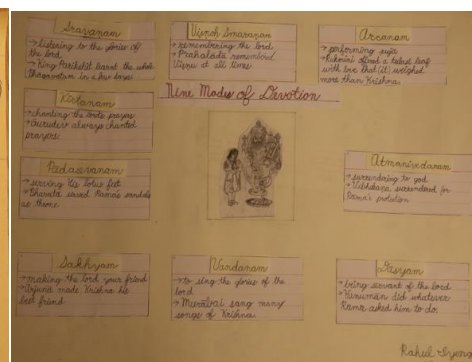 Sravanam
→ listening to the glories of
the lord
→ King Parikshit learnt the whole
Bhagavatam in a few days
Vishnu Smaranam
→ remembering the lord
→ Prahalada remembered
Vishnu at all times
Arcanam
→ performing puja
→ Rukmini offered a tulasi leaf
with love that (it) weighed
more than Krishna
Nine Modes of Devotion
Kirtanam
→ chanting the lord's prayers
→ always chanted
prayers
Padasevanam
→ serving His lotus feet
→ Bharata Rama's sandals
as throne
Atmanivedanam
→ surrendering to god
→ Vibhishana surrendered for
Rama's protection
Sakhyam
→ making the lord your friend
→ Arjuna made Krishna his
best friend
Vandanam
→ to sing the glories of the
lord
→ Meerabai sang many
songs of Krishna
Dasyam
→ being servant of the lord
→ Hanuman did whatever
Rama asked him to do
Rahul